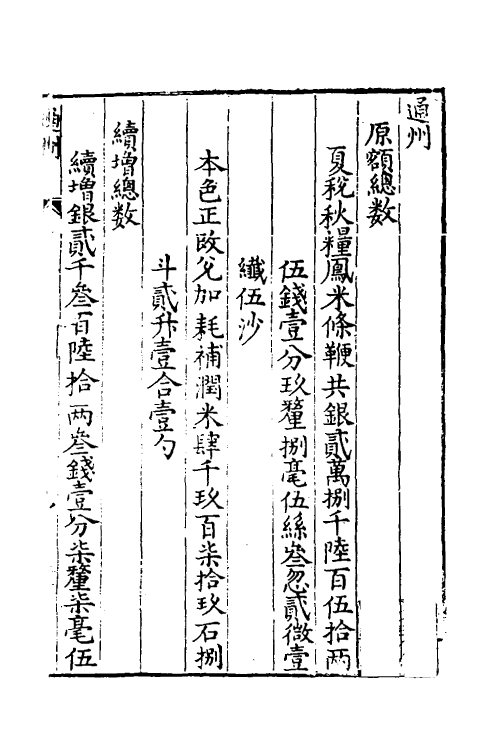 通州
原額總数
夏稅秋糧鳳米條鞭共銀貳萬捌千陸百伍拾两
伍錢壹分玖釐捌毫伍絲叁忽貳微壹
纎伍沙
本色正改兊加耗補潤米肆千玖百柒拾玖石捌
斗貳升壹合壹勺
續增總数
續增銀貳千叁百陸拾两叁錢壹分柒釐柒毫伍